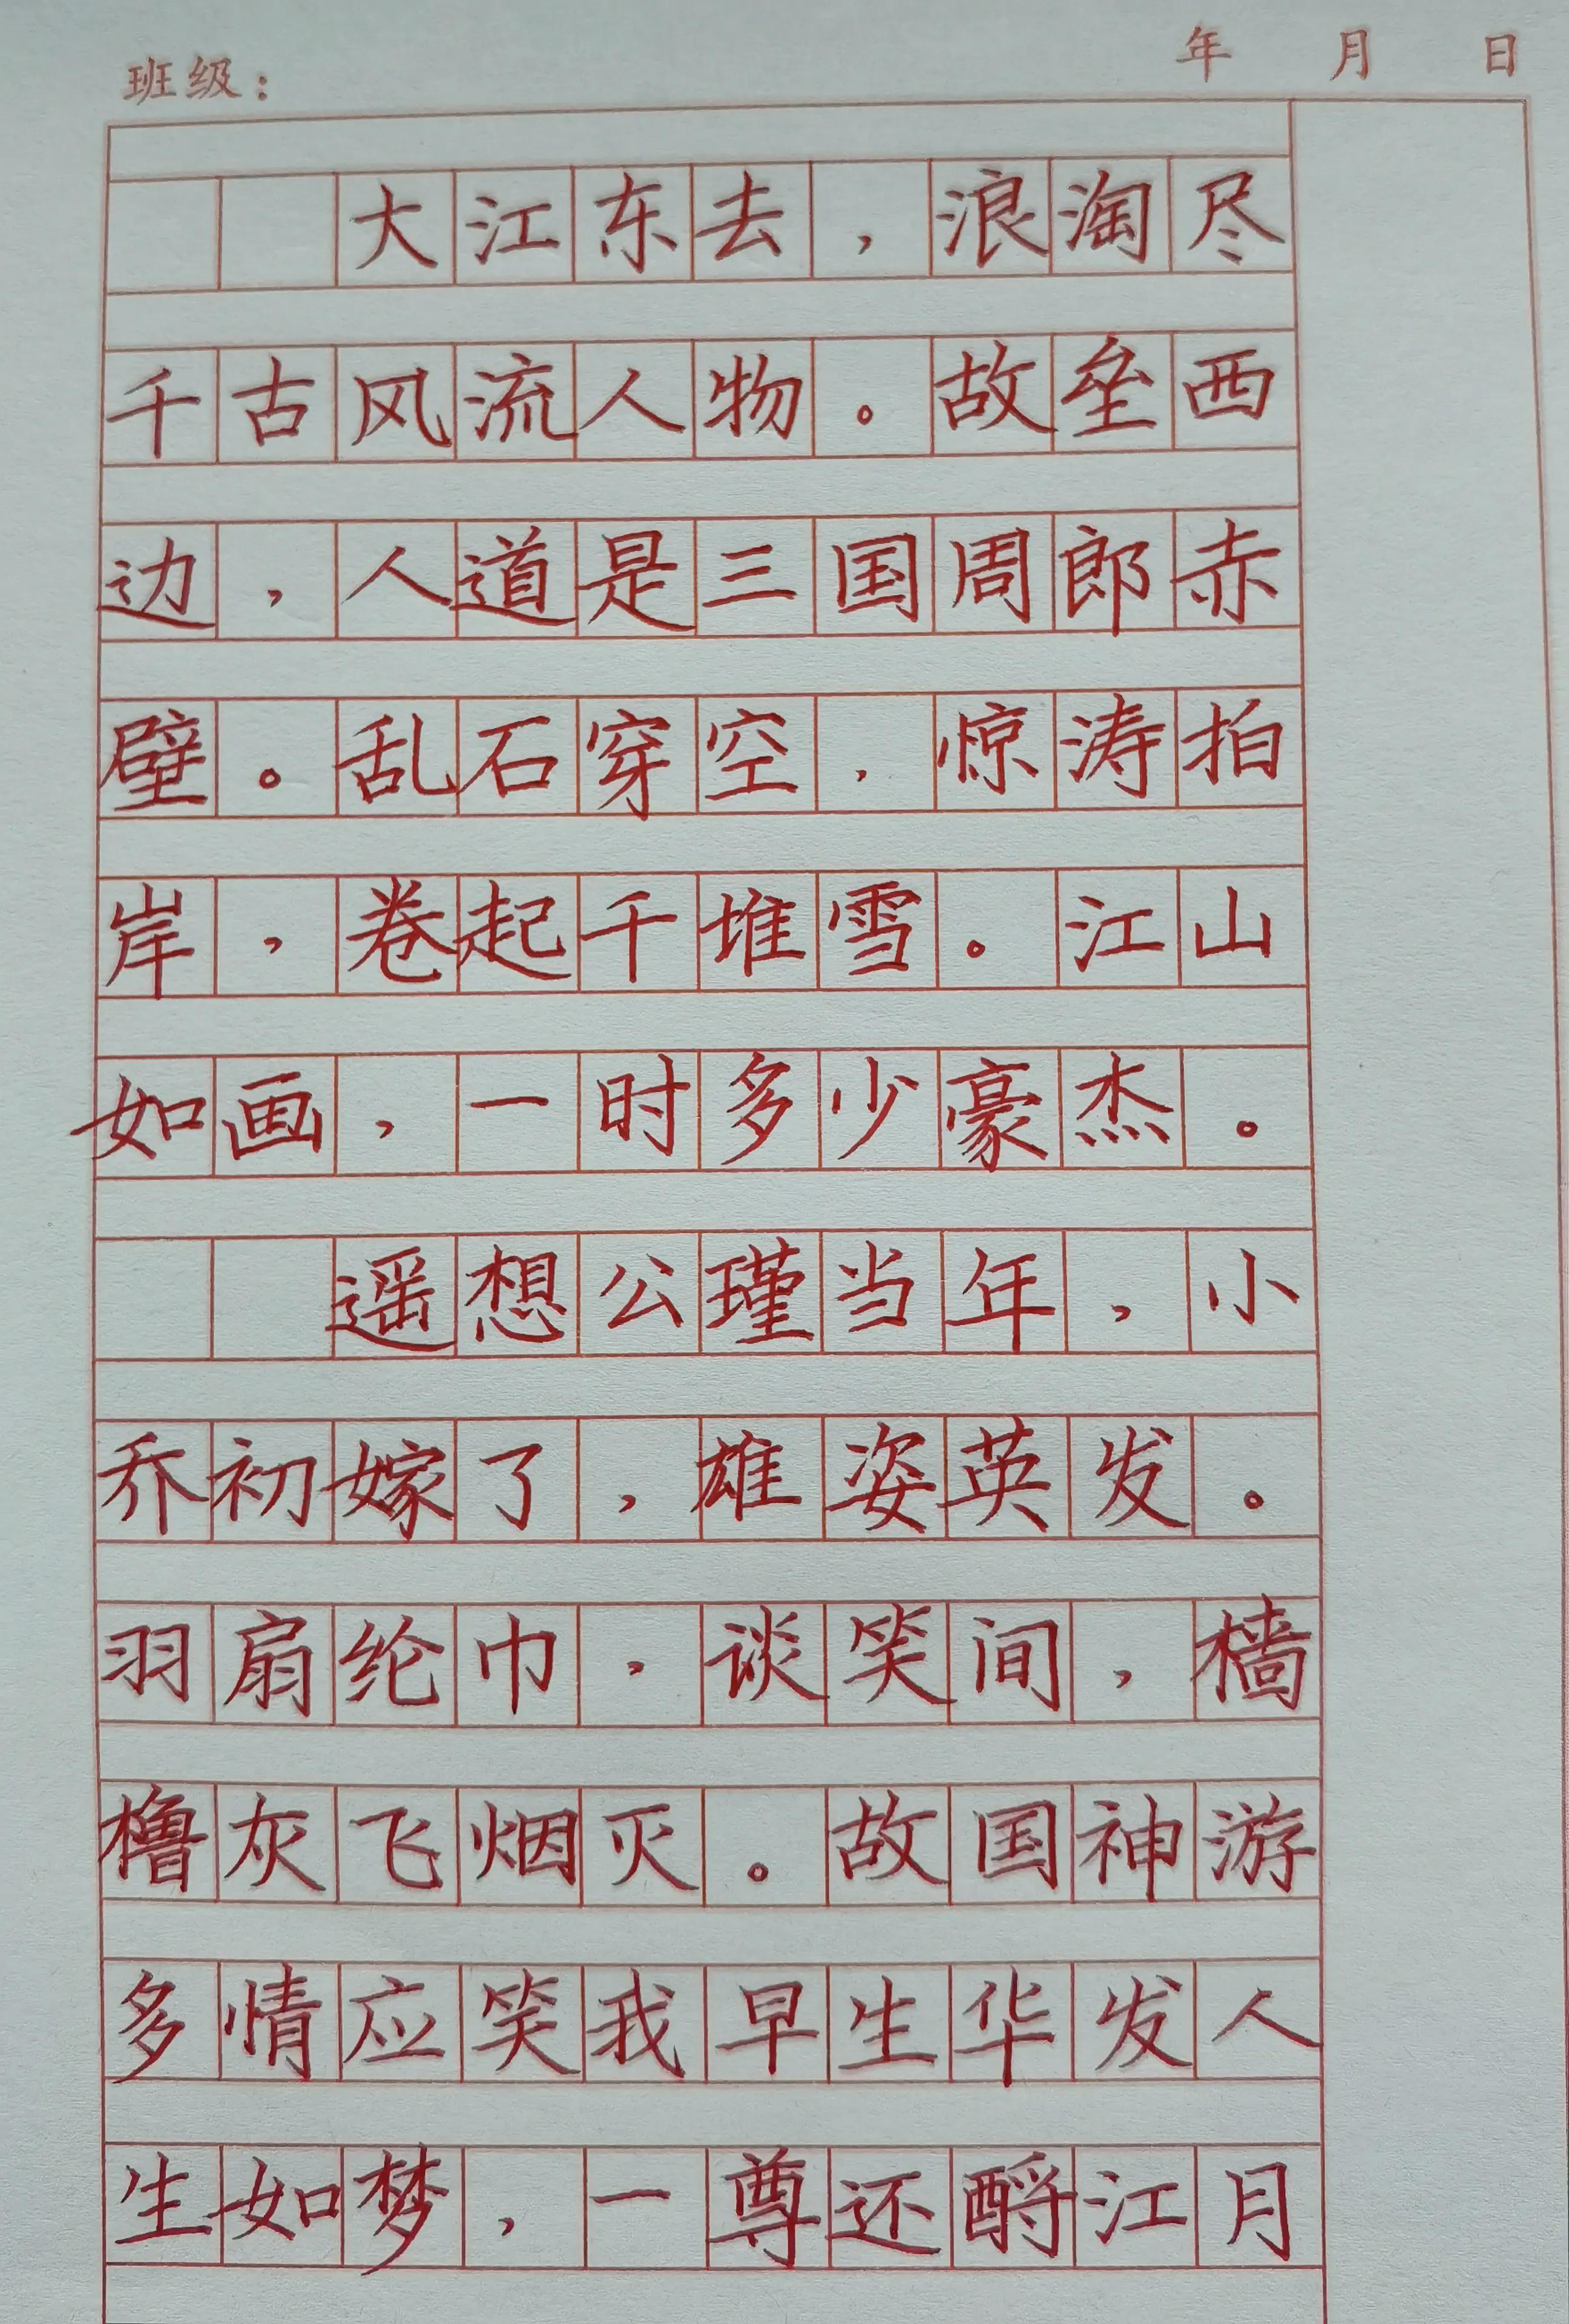 班级： 年 月 日
大江东去，浪淘尽
千古风流人物。故垒西
边，人道是三国周郎赤
壁。乱石穿空，惊涛拍
岸，卷起千堆雪。江山
如画，一时多少豪杰。
遥想公瑾当年，小
乔初嫁了，雄姿英发。
羽扇纶巾，谈笑间，樯
橹灰飞烟灭。故国神游
多情应笑我早生华发人
生如梦，一尊还酹江月